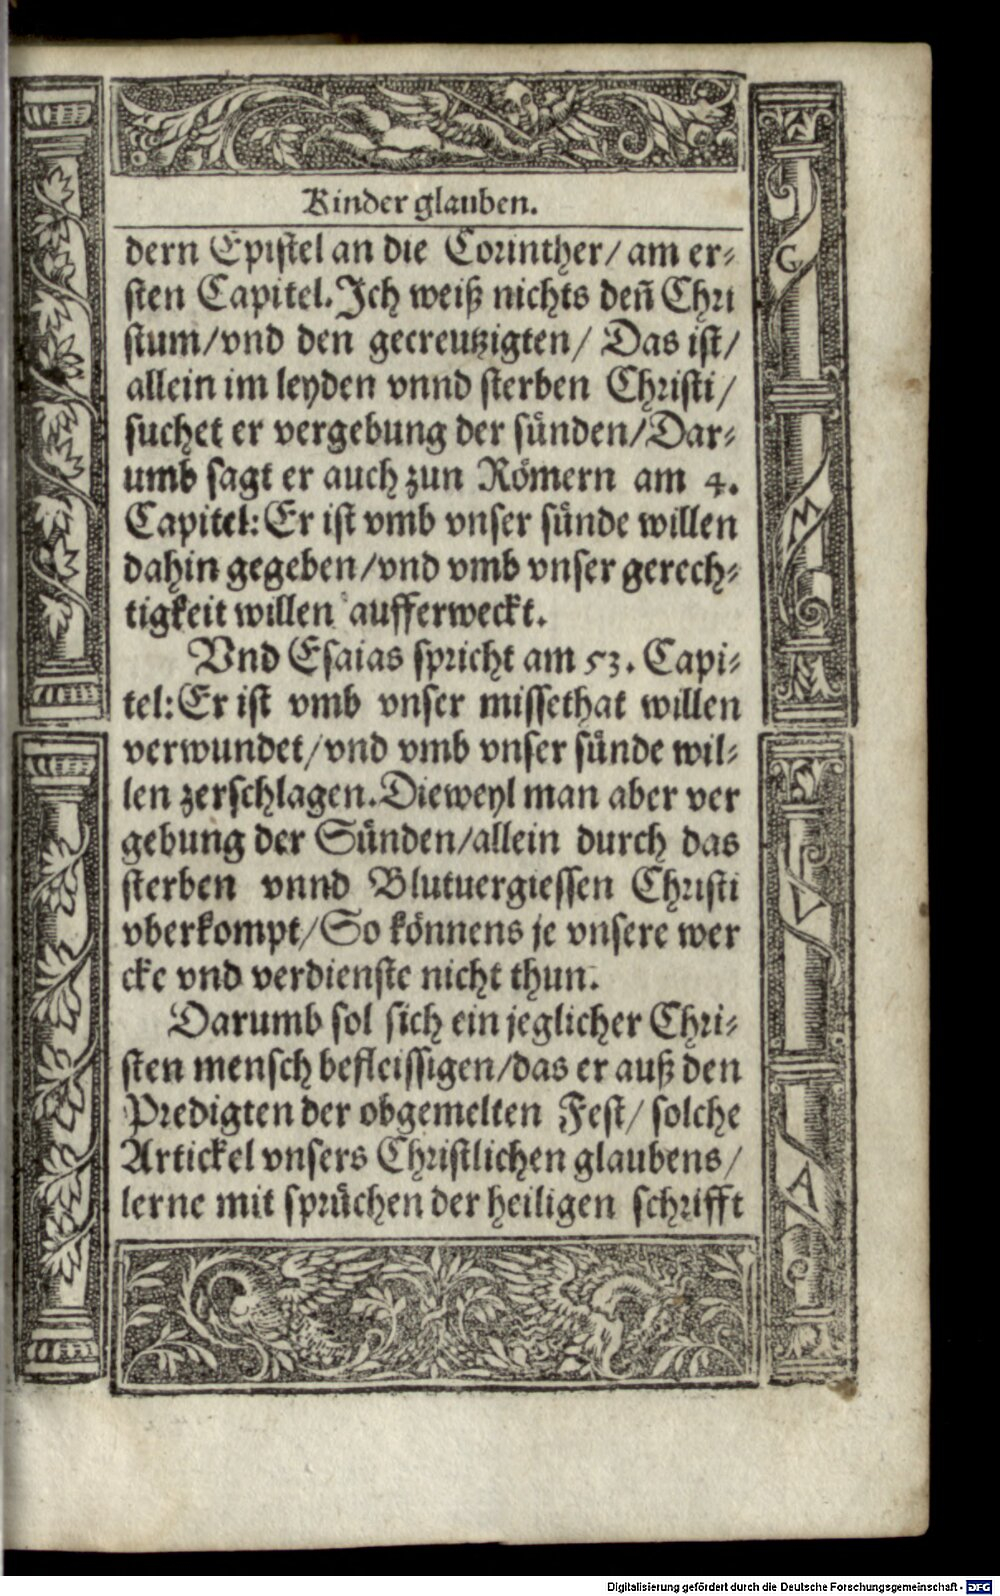 Kinder glauben.
dern Epistel an die Corinther/ am er-
sten Capitel. Ich weiß nichts deñ Chri
stum/vnd den gecreutzigten/ Das ist/
allein im leyden vnnd sterben Christi/
suchet er vergebung der sünden/Dar-
umb sagt er auch zun Römern am 4.
Capitel: Er ist vmb vnser sünde willen
dahin gegeben/vnd vmb vnser gerech-
tigkeit willen aufferweckt.
Vnd Esaias spricht am 53. Capi-
tel: Er ist vmb vnser missethat willen
verwundet/vnd vmb vnser sünde wil-
len zerschlagen. Dieweyl man aber ver
gebung der Sünden/allein durch das
sterben vnnd Blutuergiessen Christi
vberkompt/So könnens je vnsere wer
cke vnd verdienste nicht thun.
Darumb sol sich ein jeglicher Chri-
sten mensch befleissigen/das er auß den
Predigten der obgemelten Fest/ solche
Artickel vnsers Christlichen glaubens/
lerne mit sprüchen der heiligen schrifft
G
M
V
A
Digitalisierung gefördert durch die Deutsche Forschungsgemeinschaft - DFG